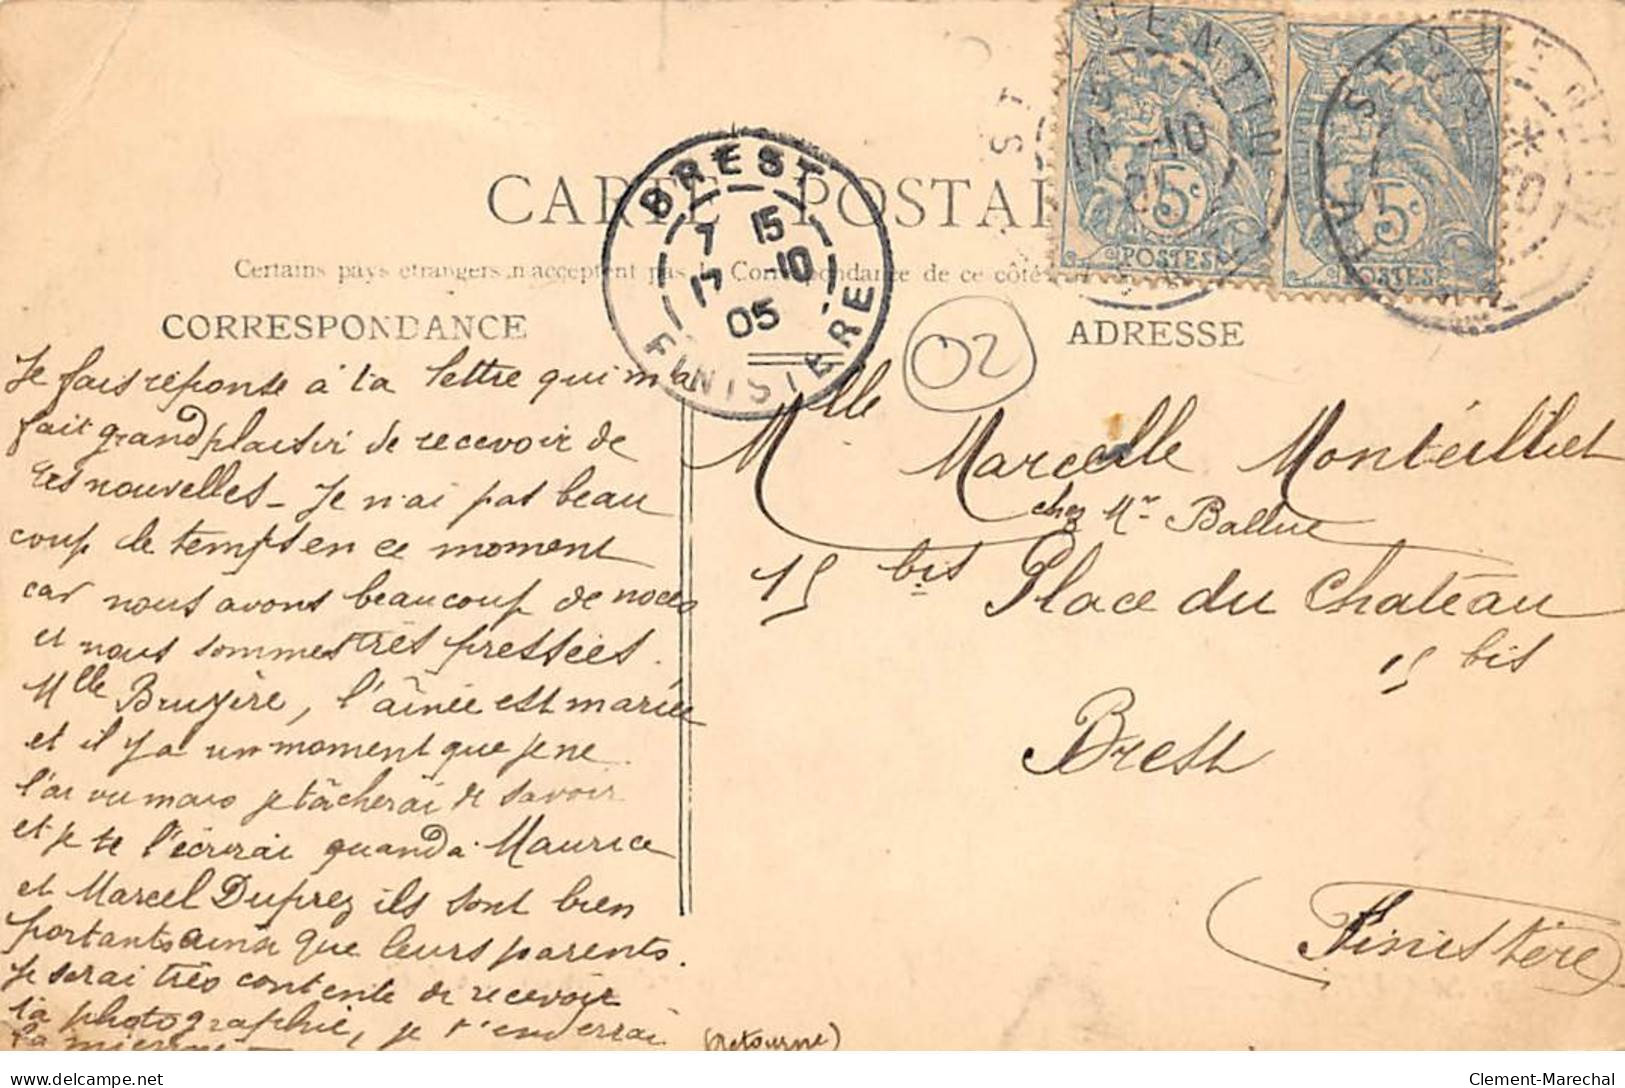 CARTE POSTALE
Certains pays étrangers n'acceptent pas la Correspondance de ce côté
CORRESPONDANCE
ADRESSE
BREST
7 15
17 10
05
FINISTERE
ST QUENTIN
16 -10
05
5c
POSTES
ST QUENTIN
AISNE
5c
POSTES
02
Je fais réponse à ta lettre qui m'a
fait grand plaisir de recevoir de
tes nouvelles - Je n'ai pas beau
coup de temps en ce moment
car nous avons beaucoup de noces
et nous sommes très pressées.
Mlle Bruyère, l'aînée est mariée
et il y a un moment que je ne
l'ai vu mais je tâcherai de savoir
et je te l'écrirai quand à Maurice
et Marcel Duprez ils sont bien
portants ainsi que leurs parents.
Je serai très contente de recevoir
ta photographie, je t'enverrai
la mienne
(retourne)
Mlle Marcelle Monteilliet
chez Mr Ballue
15 bis Place du Château
15 bis
Brest
Finistère
delcampe.net
Clement-Marechal